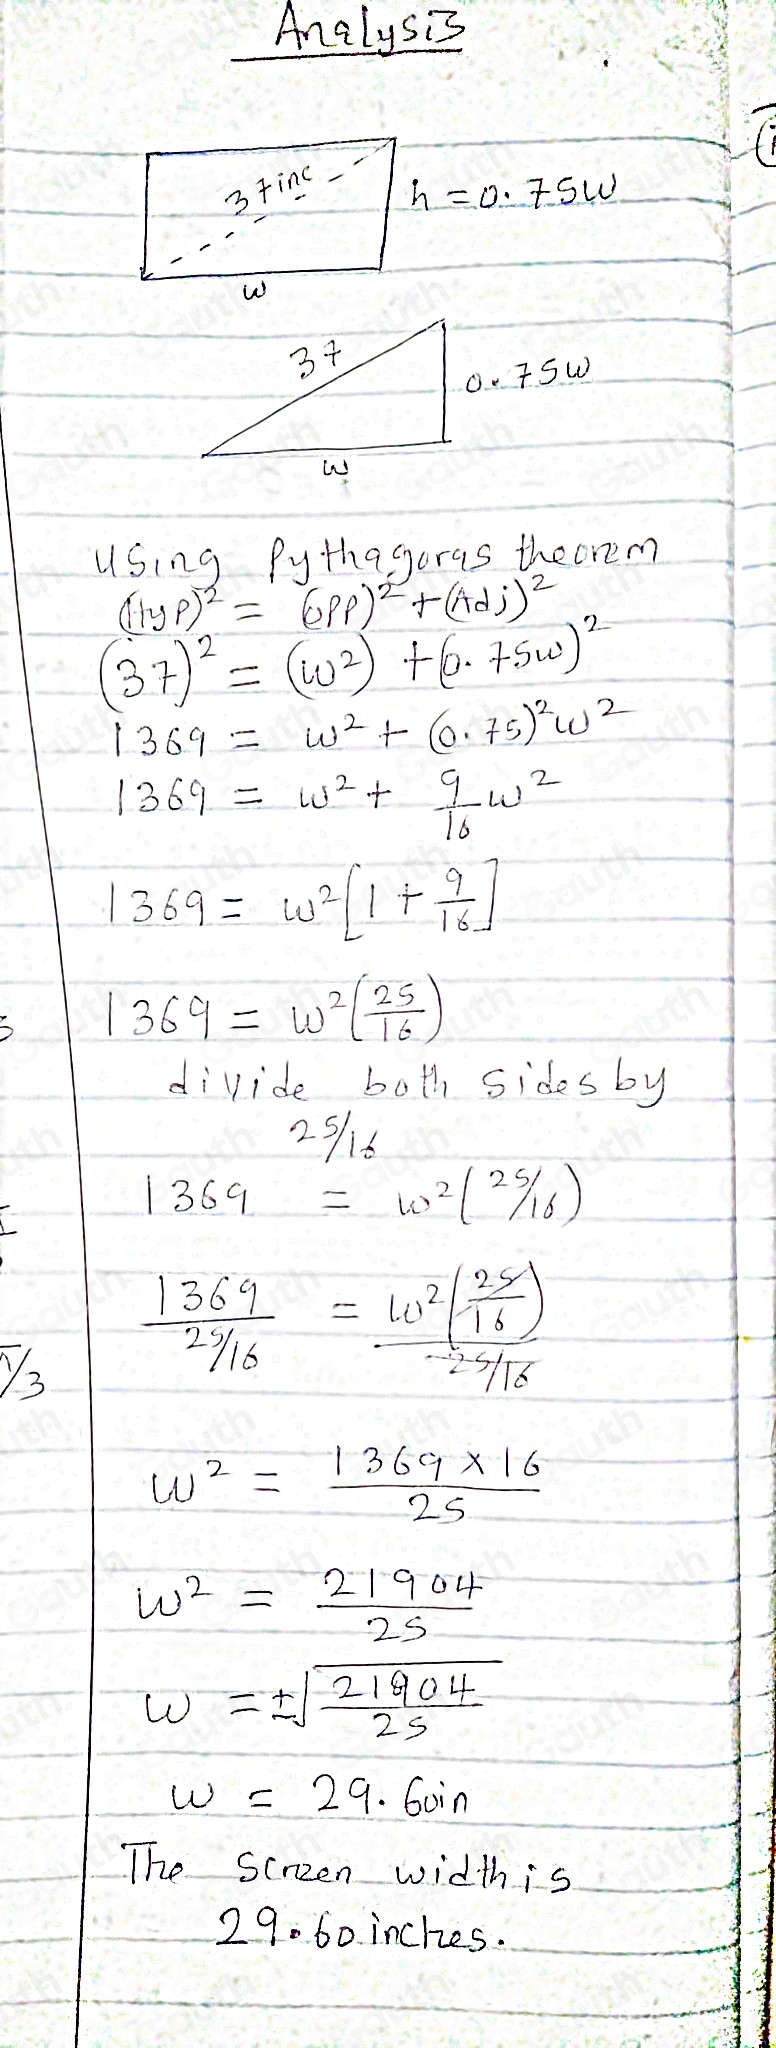 Analysis
37inc
h = 0.75w
w
37
0.75w
w
using Pythagoras theorem
(Hyp)² = (opp)² + (Adj)²
(37)² = (w²) + (0.75w)²
1369 = w² + (0.75)²w²
1369 = w² + 9/16 w²
1369 = w²[1 + 9/16]
1369 = w²(25/16)
divide both sides by
25/16
1369 = w²(25/16)
1369 / 25/16 = w²(25/16) / 25/16
w² = 1369 × 16 / 25
w² = 21904 / 25
w = ±√21904/25
w = 29.60in
The screen width is
29.60 inches.
π/3